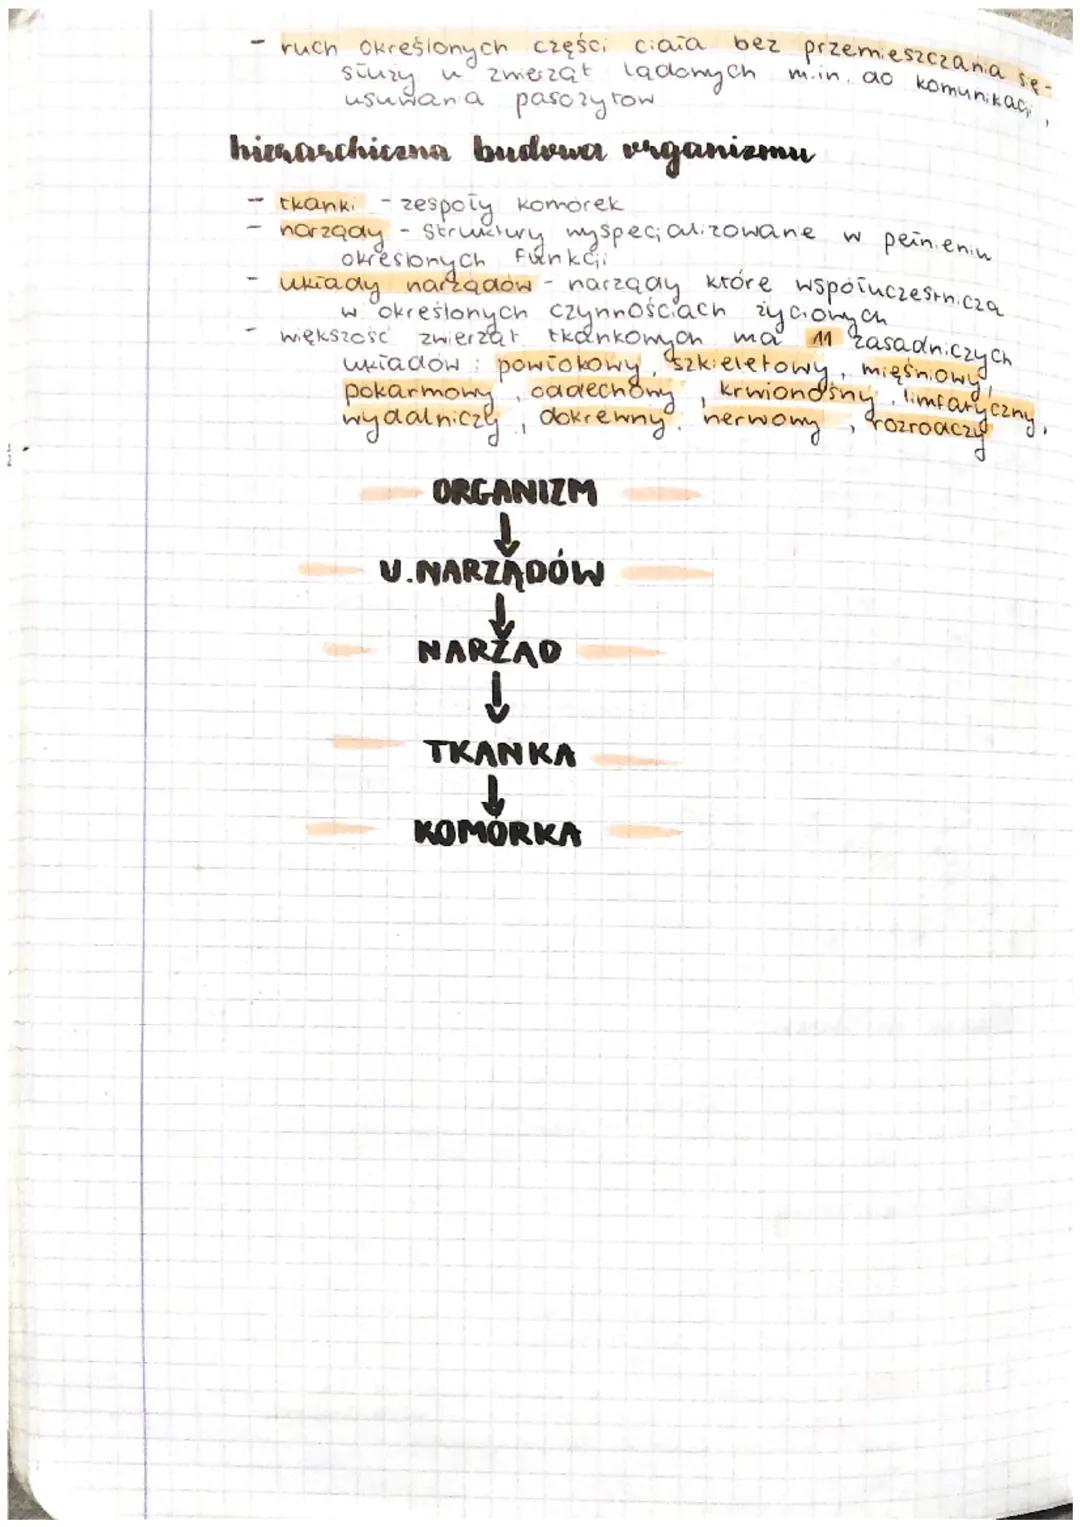 - ruch określonych części ciała bez przemieszczania się -
służy u zwierząt lądowych m.in. do komunikacji,
usuwania pasożytów
hierarchiczna budowa organizmu
- tkanki - zespoły komórek
- narządy - struktury wyspecjalizowane w pełnieniu
określonych funkcji
- układy narządów - narządy które współuczestniczą
w określonych czynnościach życiowych
- większość zwierząt tkankowych ma 11 zasadniczych
układów : powłokowy, szkieletowy, mięśniowy,
pokarmowy, oddechowy, krwionośny, limfatyczny,
wydalniczy, dokrewny, nerwowy, rozrodczy
ORGANIZM
↓
U.NARZĄDÓW
↓
NARZĄD
↓
TKANKA
↓
KOMÓRKA